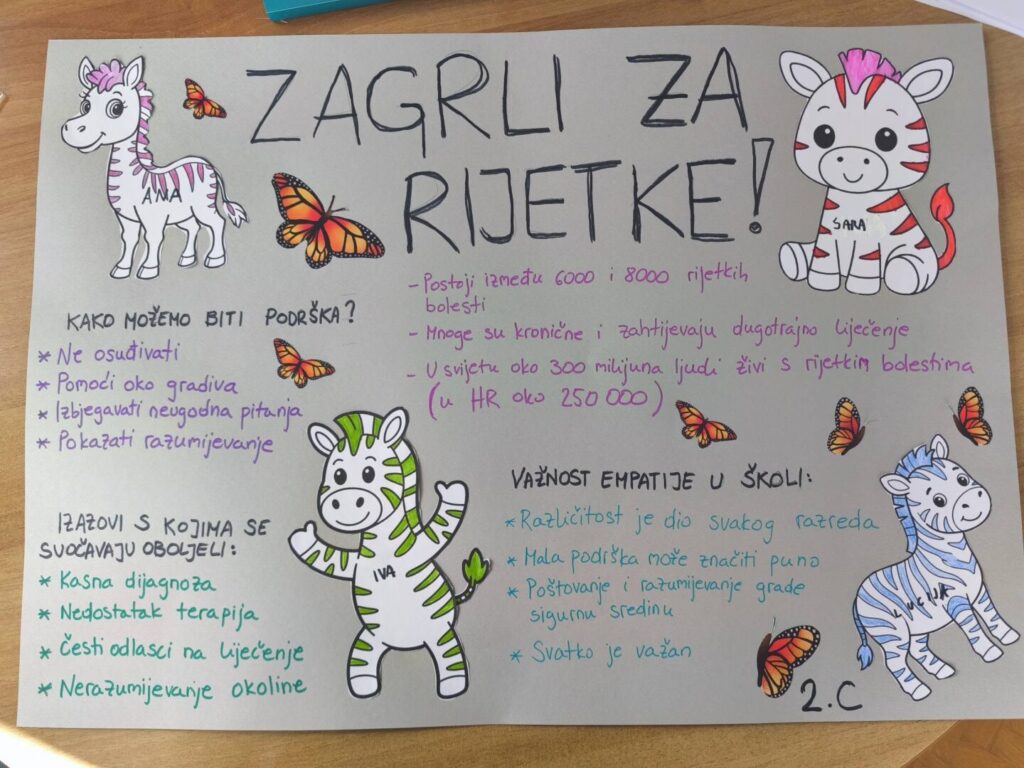 ZAGRLI ZA
RIJETKE!
ANA
SARA
- Postoji između 6000 i 8000 rijetkih
bolesti
- Mnoge su kronične i zahtijevaju dugotrajno liječenje
- U svijetu oko 300 milijuna ljudi živi s rijetkim bolestima
(u HR oko 250 000)
KAKO MOŽEMO BITI PODRŠKA?
* Ne osuđivati
* Pomoći oko gradiva
* Izbjegavati neugodna pitanja
* Pokazati razumijevanje
IZAZOVI S KOJIMA SE
SUOČAVAJU OBOLJELI:
* Kasna dijagnoza
* Nedostatak terapija
* Česti odlasci na liječenje
* Nerazumijevanje okoline
IVA
VAŽNOST EMPATIJE U ŠKOLI:
* Različitost je dio svakog razreda
* Mala podrška može značiti puno
* Poštovanje i razumijevanje grade
sigurnu sredinu
* Svatko je važan
LUCIJA
2.C